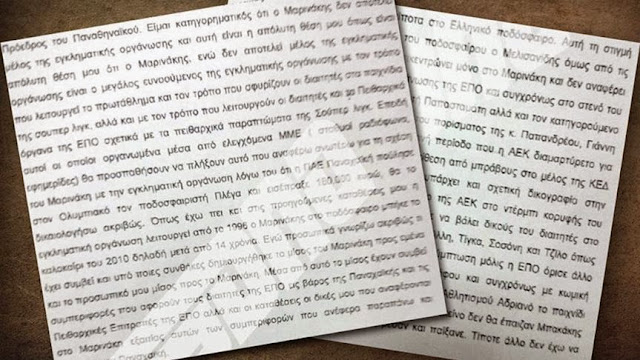 Πρόεδρος του Παναθηναϊκού. Είμαι κατηγορηματικός ότι ο Μαρινάκης δεν αποτελεί
μέλος της εγκληματικής οργάνωσης και αυτή είναι η απόλυτη θέση μου όπως είναι
απόλυτη θέση μου ότι ο Μαρινάκης, ενώ δεν αποτελεί μέλος της εγκληματικής
οργάνωσης είναι ο μεγάλος ευνοούμενος της εγκληματικής οργάνωσης με τον τρόπο
που λειτουργεί το πρωτάθλημα και τον τρόπο που σφυρίζουν οι διαιτητές στα παιχνίδια
της σουπερ λιγκ, αλλά και με τον τρόπο που λειτουργούν οι διαιτητές και τα Πειθαρχικά
όργανα της ΕΠΟ σχετικά με τα πειθαρχικά παραπτώματα της Σούπερ λιγκ. Επειδή
αυτοί οι οποίοι οργανωμένα μέσα από ελεγχόμενα ΜΜΕ ( σταθμοί ραδιοφώνου,
εφημερίδες) θα προσπαθήσουν να πλήξουν αυτό που αναφέρω ανωτέρω για τη σχέση
του Μαρινάκη με την εγκληματική οργάνωση λόγω του ότι η ΠΑΕ Παναχαϊκή πούλησε
στον Ολυμπιακό τον ποδοσφαιριστή Πλέγα και εισέπραξε 180.000 ευρώ, θα το
δικαιολογήσω ακριβώς. Όπως έχω πει και στις προηγούμενες καταθέσεις μου η
εγκληματική οργάνωση λειτουργεί από το 1996 ο Μαρινάκης στο ποδόσφαιρο μπήκε το
καλοκαίρι του 2010 δηλαδή μετά από 14 χρόνια. Εγώ προσωπικά γνωρίζω ακριβώς τι
έχει συμβεί και υπό ποιες συνθήκες δημιουργήθηκε το μίσος του Μαρινάκη προς εμένα
και το προσωπικό μου μίσος προς το Μαρινάκη. Μέσα από αυτό το μίσος έχουν συμβεί
συμπεριφορές που αφορούν τους διαιτητές της ΕΠΟ εις βάρος της Παναχαϊκής και τις
Πειθαρχικές Επιτροπές της ΕΠΟ αλλά και οι καταθέσεις οι δικές μου που αναφέρονται
στο Μαρινάκη εξαιτίας αυτών των συμπεριφορών που ανέφερα παραπάνω και
Παναχαϊκή.
τίποτα στο Ελληνικό ποδόσφαιρο. Αυτή τη στιγμή
του ποδοσφαίρου ο Μελισσανίδης όμως από τις
κεντρώνει μόνο στο Μαρινάκη και δεν αναφέρει
νωσης της ΕΠΟ και συγχρόνως στο στενό του
Παπασταμάτη αλλά και τον κατηγορούμενο
του πορίσματος της κ. Παπανδρέου, Γιάννη
ή περίοδο που η ΑΕΚ διαμαρτύρετο για
θεση από μπράβους στο μέλος της ΚΕΔ
πάρχει και σχετική δικογραφία στην
της ΑΕΚ στο ντέρμπι κορυφής του
να βάλει δικούς του διαιτητές στο
λλη, Τίγκα, Σοσόνη και Τζίλο όπως
μπτωση μόλις η ΕΠΟ όρισε άλλο
φου και συγχρόνως με κωμική
αθλητισμού Αδριανό το παιχνίδι
κείνο δεν θα έπαιζαν Μπακάκης
ουν και παίξανε. Τίποτε άλλο δεν έχω να